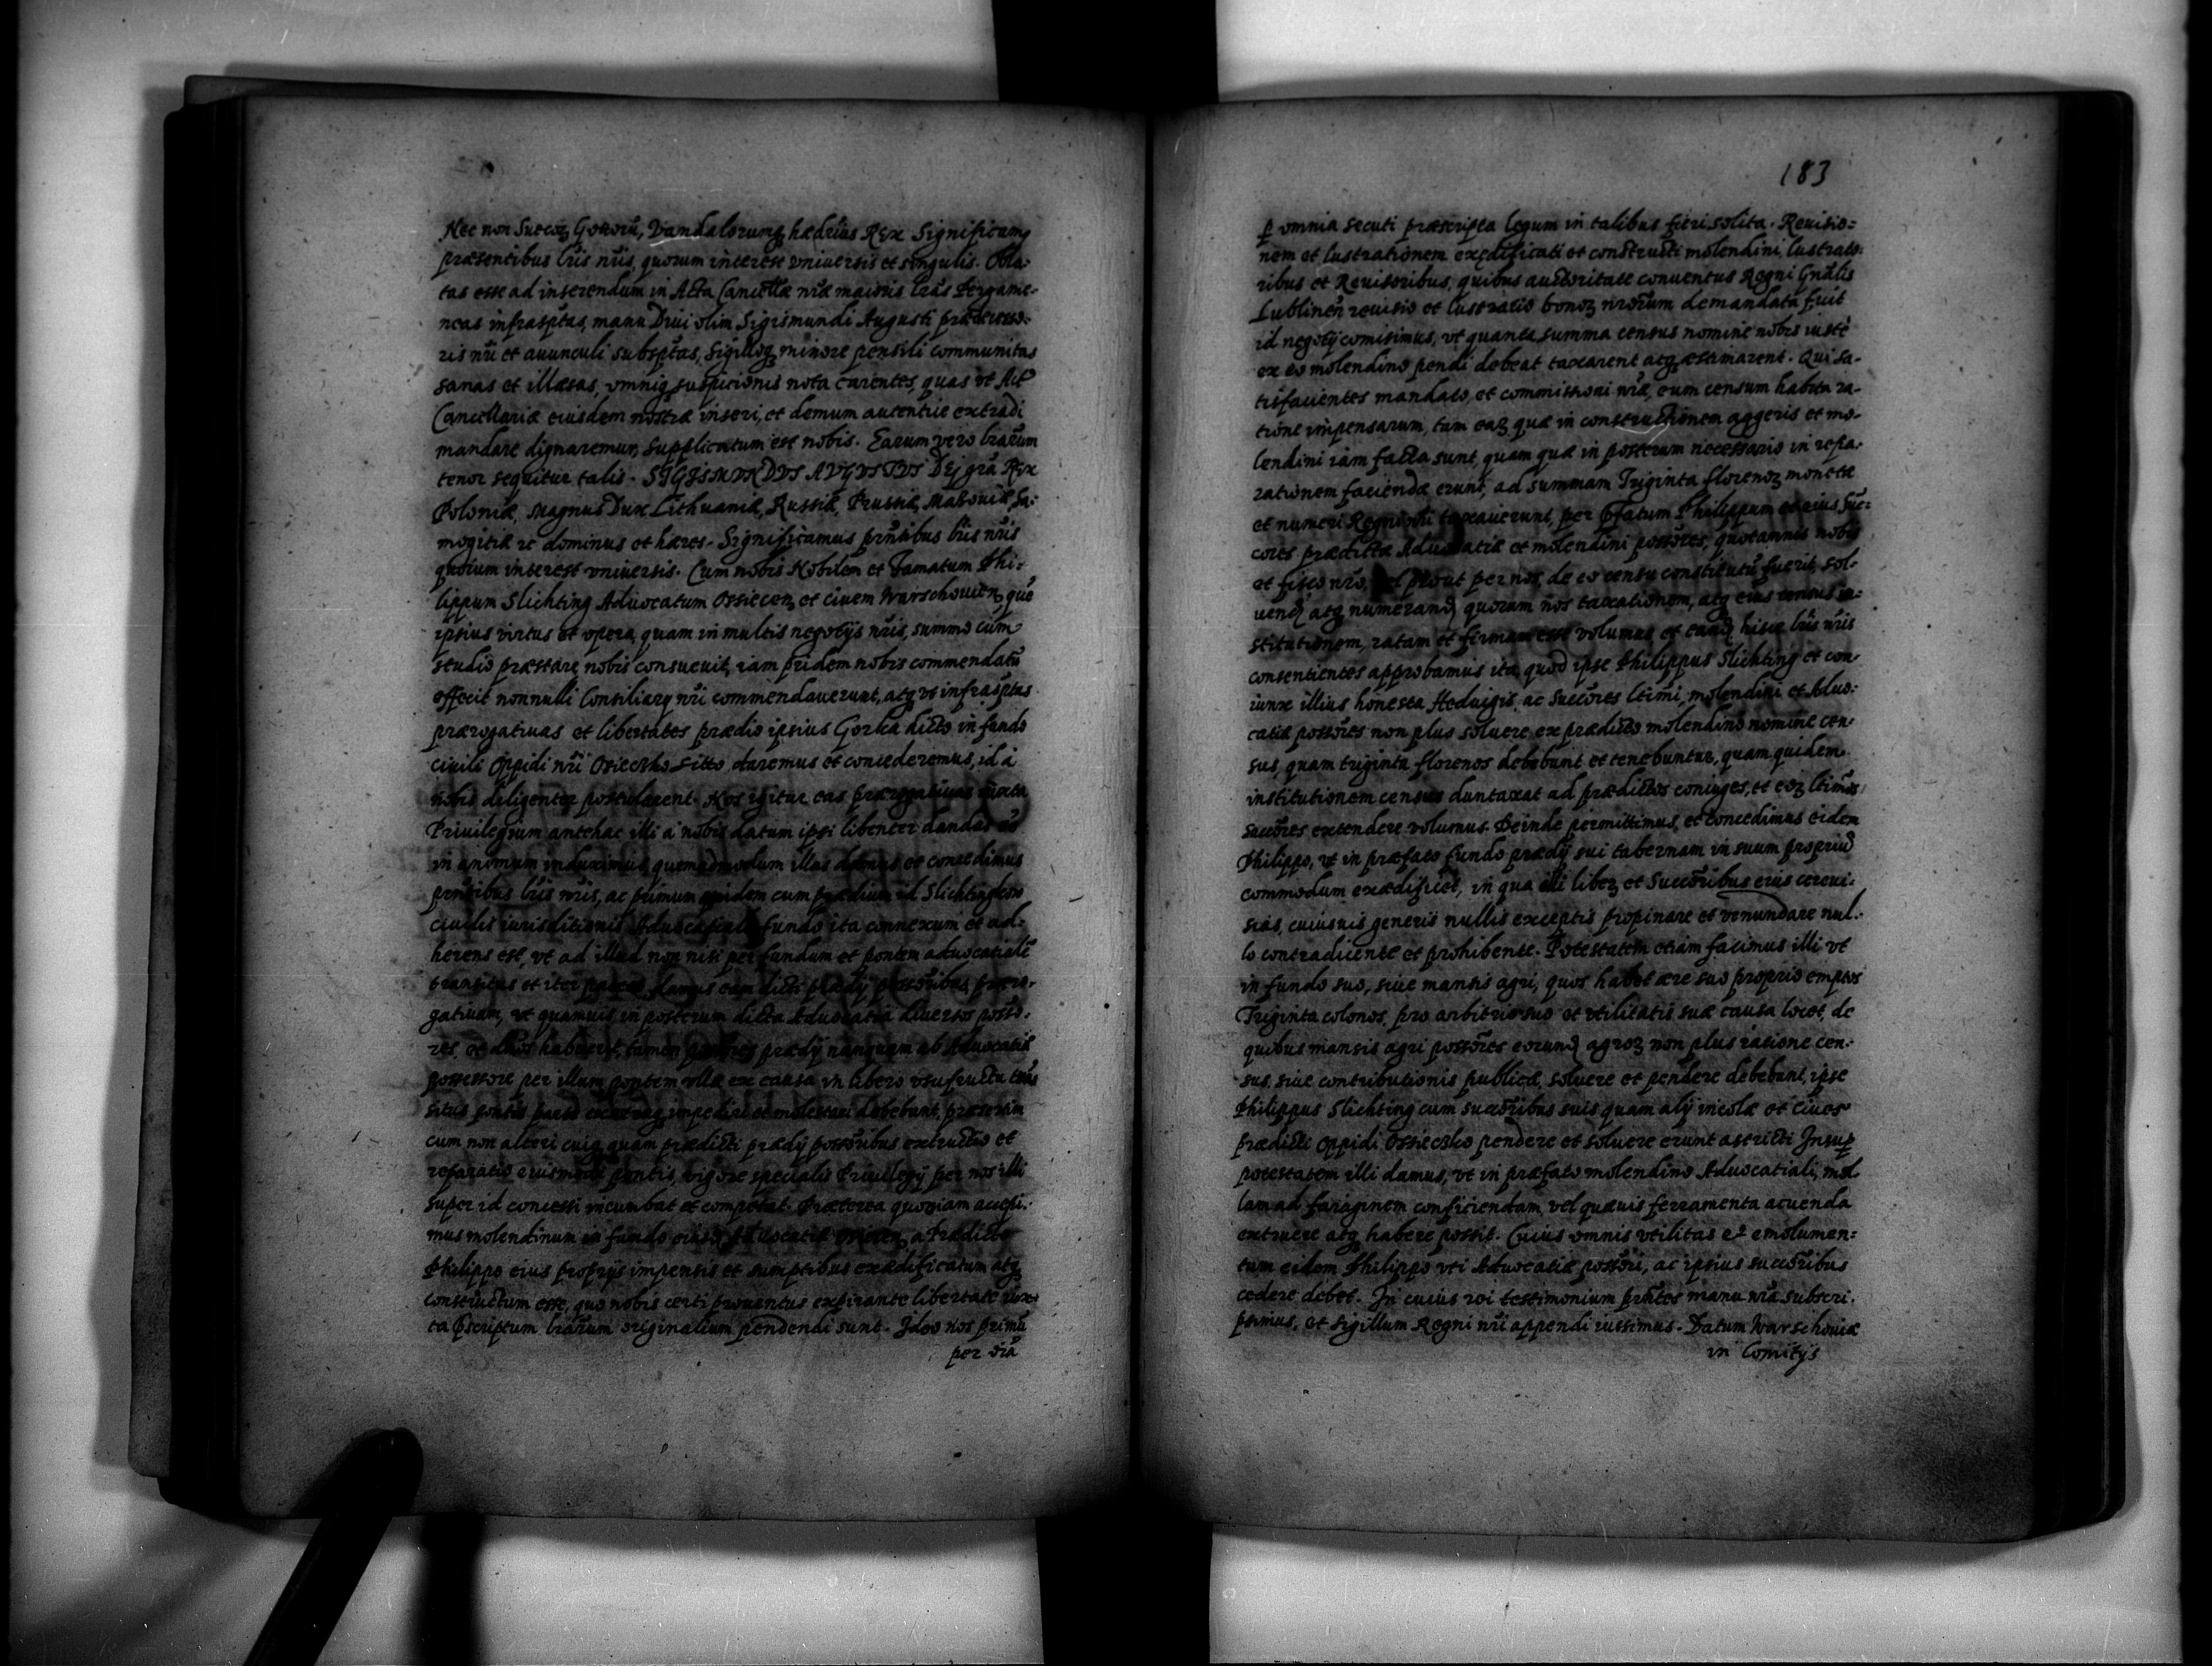 Nec non Suecoꝝ Gottorū, Vandalorumqꝫ hædrius Rex Significamꝯ
præsentibus lr̄is nr̄is, quorum interest vniuersis et singulis. Obla-
tas esse ad inserendum in Acta Cancellæ nr̄æ maioris lr̄as Pergame-
neas infrasp̄tas, manu Diui olim Sigismundi Augusti prædecesso-
ris nr̄i et auunculi subsp̄tas, Sigilloqꝫ minore pensili communitas
sanas et illæsas, omniqꝫ suspicionis nota carentes, quas vt Actꝭ
Cancellariæ eiusdem nostræ inseri, et demum autentice extradi
mandare dignaremur, supplicatum est nobis. Earum vero lr̄arum
tenor sequitur talis. SIGISMVNDVS AVGVSTVS Dej gra Rex
Poloniæ, Magnus Dux Lithuaniæ, Russiæ, Prussiæ, Masouiæ, Sa-
mogitiæ zc dominus et hæres. Significamus prn̄tibus lr̄is nr̄is
quorum interest vniuersis. Cum nobis Nobilem et Famatum Phi-
lippum Slichting Aduocatum Ossiecen, et ciuem Warschouien, quē
ipsius virtus et opera, quam in multis negotijs nr̄is, summo cum
studio præstare nobis consueuit, iam pridem nobis commendatū
effecit nonnulli Consiliarij nr̄i commendauerunt, atqꝫ vt infrasp̄tas
prærogatiuas et libertates prædio ipsius Gorka dicto in fundo
ciuili Oppidi nr̄i Osieczko sitto, daremus et concederemus, id à
nobis diligenter postularent. Nos igitur eas prærogatiuas iuxta
Priuilegium antehac illi à nobis datum ipsi libenter dandas eē
in animum induximus, quemadmodum illas damus et concedimus
prn̄tibus lr̄is nr̄is, ac primum quidem cum prædium id Slichtingden
ciuilis iurisditionis Aduocatiali fundo ita connexum et ad-
herens est, vt ad illud non nisi per fundum et pontem aduocatialē
transitus et iter pateat, damus eam dicti prædij possoribus præro-
gatiuam, vt quamuis in posterum dicta Aduocatia diuersos posso-
res, et habuerit, tamen prædij nunquam ab Aduocatiæ
possessore per illum pontem vlla ex causa in libero vsufructu trās
situs pontis impediri et molestari debebunt, præsertim
cum non alteri cuiqꝫ quam prædicti prædij possoribus extructio et
reparatio eiusmodi pontis, vigore specialis Priuilegij per nos illi
super id concessi incumbat et competat. Præterea quoniam accepi-
mus molendinum in fundo eiusd Aduocatiæ a Prædicto
Philippo eius proprijs impensis et sumptibus exædificatum atqꝫ
constructum esse, quo nobis certi prouentus expirante libertate iux-
ta p̄scriptum lr̄arum originalium pendendi sunt. Ideo nos primū
per oīa
183
ꝑ omnia secuti præscripta legum in talibus fieri solita. Reuisio-
nem et lustrationem exędificati et constructi molendini, lustrato-
ribus et Reuisoribus, quibus auctoritate conuentus Regni Gn̄alis
Lublinen̄ reuisio et lustratio bonoꝝ nr̄orum demandata fuit
id negotij comisimus, vt quanta summa census nomine nobis iustè
ex eo molendino pendi debeat taxarent atqꝫ æstimarent. Qui sa-
tisfacientes mandato, et commissioni nr̄æ, eum censum habita ra-
tione impensarum, tum eaꝝ quæ in constructionem aggeris et mo-
lendini iam facta sunt, quam quæ in posterum necessario in repa-
rationem faciendæ erunt, ad summam Triginta florenoꝝ monetæ
et numeri Regni nr̄i taxauerunt, per p̄fatum Philippum et eius suc-
cores prædictæ Aduocatiæ et molendini possores, quotannis nobis
et fisco nr̄o, vel prout per nos, de eo censu constitutū fuerit, sol-
uend atqꝫ numerand quoram nos taxationem, atqꝫ eius census in-
stitutionem, ratam et firmam esse volumus, et eand hisce lr̄is nr̄is
consentientes approbamus ita, quod ipse Philippus Slichting et con-
iunx illius honesta Heduigis, ac Succores ltimi, molendini et Aduo-
catiæ possores non plus soluere ex prædicto molendino nomine cen-
sus, quam triginta florenos debebunt et tenebuntur, quam quidem
institutionem census duntaxat ad prædictos coniuges, et eoꝝ ltimos
succores extendere volumus. Deinde permittimus, et concedimus eidem
Philippo, vt in præfato fundo prædij sui tabernam in suum propriū
commodum exædificet, in qua illi liber et Succoribus eius cereui-
sias, cuiusuis generis nullis exceptis propinare et venundare nul-
lo contradicente et prohibente. Potestatem etiam facimus illi vt
in fundo suo, siue mansis agri, quos habet ære suo proprio emptos
Triginta colonos, pro arbitrio suo et vtilitatis suæ causa locet, de
quibus mansis agri possores eorund agroꝝ non plus ratione cen-
sus, siue contributionis publicæ, soluere et pendere debebunt, ipse
Philippus Slichting cum succoribus suis quam alij incolæ et ciues
prædicti Oppidi Ossieczko pendere et soluere erunt astricti Insuꝑ
potestatem illi damus, vt in præfato molendino Aduocatiali, mol-
lam ad faraginem conficiendam, vel quæuis ferramenta acuenda
extruere atqꝫ habere possit. Cuius omnis vtilitas et emolumen-
tum eidem Philippo vti Aduocatiæ possori, ac ipsius succoribus
cedere debet. In cuius rei testimonium prn̄tes manu nr̄a subscri-
psimus, et sigillum Regni nr̄i appendi iussimus. Datum Warschouiæ
in Comitijs